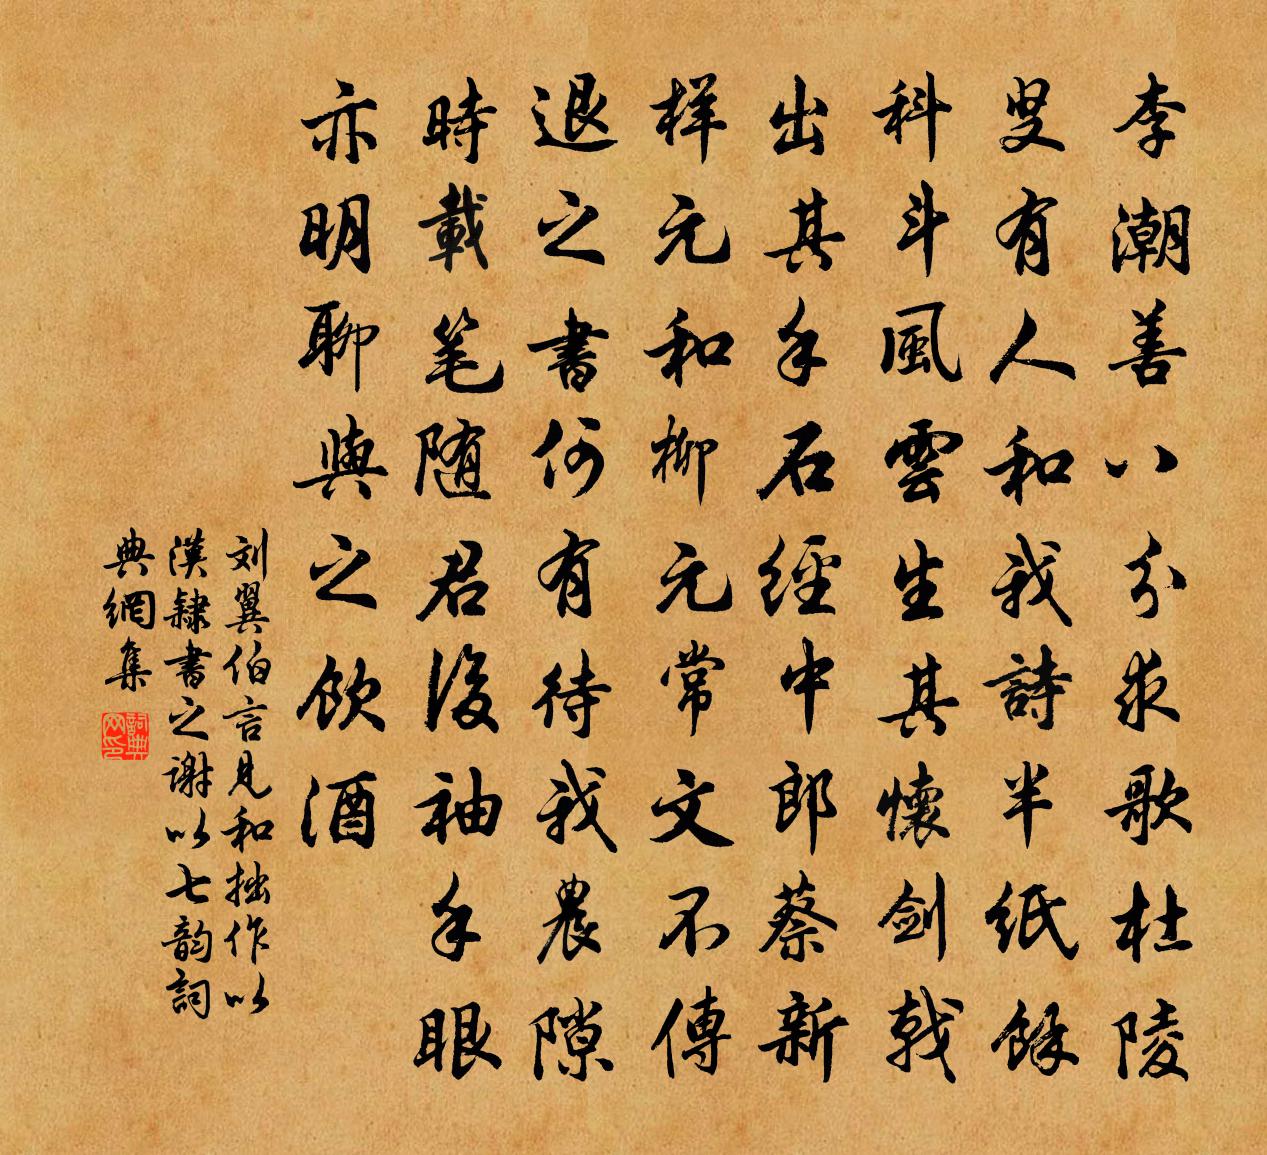 李潮善八分求歌杜陵
叟有人和我詩半紙餘
科斗風雲生其懷劍戟
出其手石經中郎蔡新
樣元和柳元常文不傳
退之書何有待我農隙
時載笔随君後袖手眼
亦明聊與之飲酒
刘翼伯言見和拙作以
漢隷書之謝以七韵詞
典網集
詞典網印